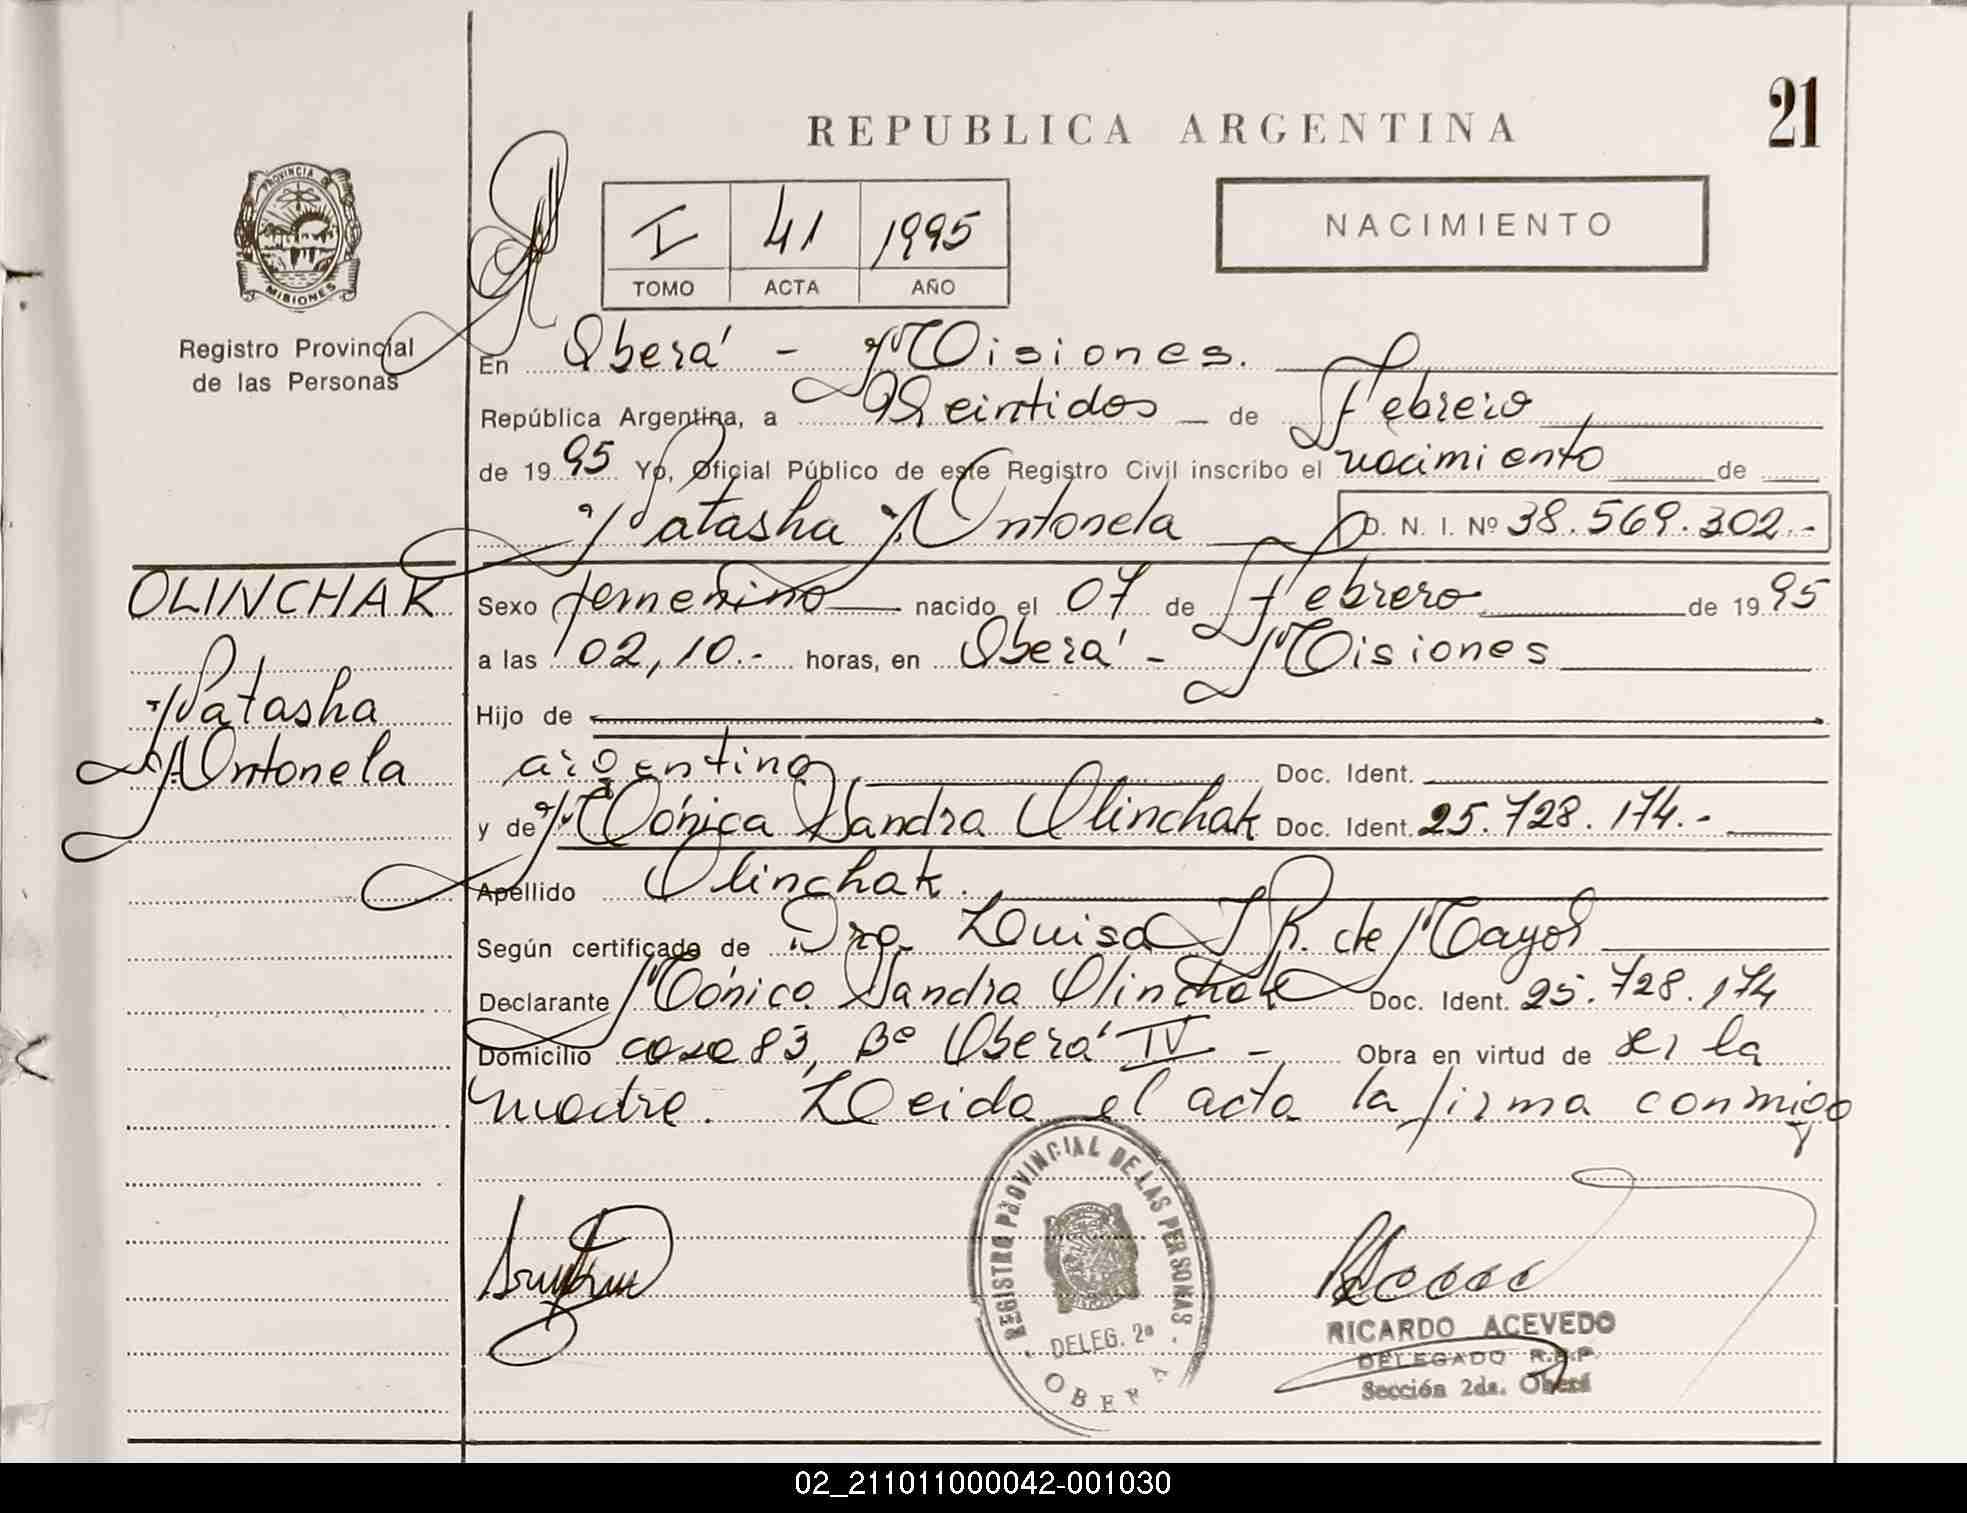 REPUBLICA ARGENTINA
21
PROVINCIA DE
MISIONES
Registro Provincial
de las Personas
I 41 1995
TOMO ACTA AÑO
NACIMIENTO
En Oberá - Misiones.
República Argentina, a Veintidos de Febrero
de 1995 Yo, Oficial Público de este Registro Civil inscribo el nacimiento de
Natasha Antonela D. N. I. Nº 38.569.302.-
OLINCHAK
Natasha
Antonela
Sexo femenino nacido el 07 de Febrero de 1995
a las 02,10.- horas, en Oberá - Misiones
Hijo de
argentina Doc. Ident.
y de Mónica Sandra Olinchak Doc. Ident. 25.728.174.-
Apellido Olinchak.
Según certificado de Dra. Luisa R. de Mayol
Declarante Mónica Sandra Olinchak Doc. Ident. 25.728.174
Domicilio casa 83, Bº Oberá IV - Obra en virtud de ser la
madre. Leida el acta la firma conmigo
REGISTRO PROVINCIAL DE LAS PERSONAS
DELEG. 2ª
OBERA
RICARDO ACEVEDO
DELEGADO R.P.P.
Sección 2da. Oberá
02_211011000042-001030